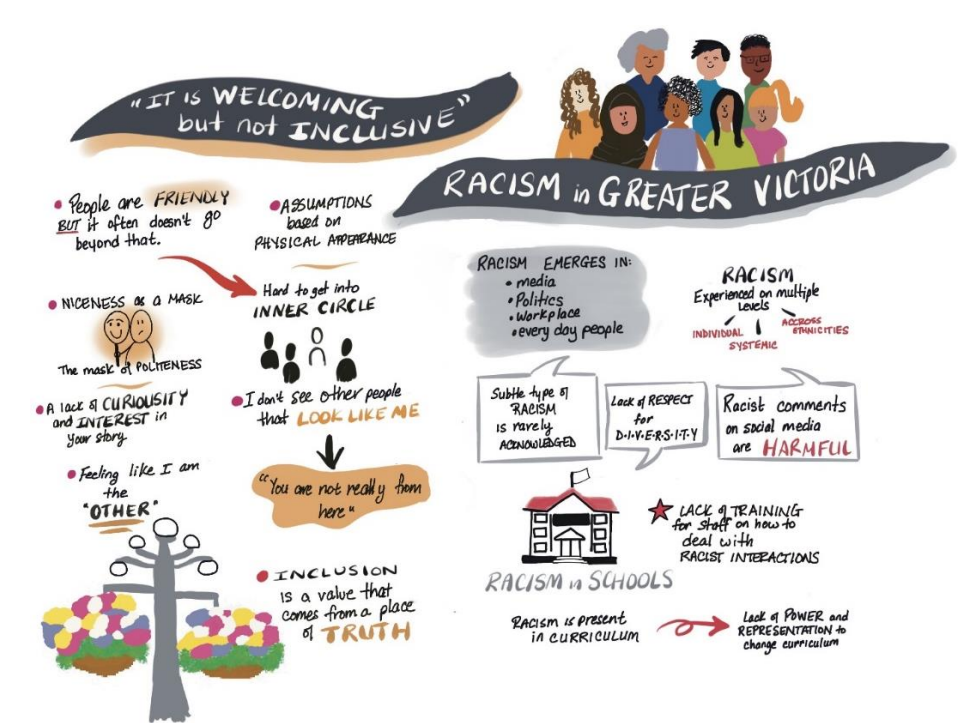 "IT IS WELCOMING
but not INCLUSIVE"
People are FRIENDLY
BUT it often doesn't go
beyond that.
ASSUMPTIONS
based on
PHYSICAL APPEARANCE
NICENESS as a MASK
The mask of POLITENESS
Hard to get into
INNER CIRCLE
A lack of CURIOUSITY
and INTEREST in
your story
I don't see other people
that LOOK LIKE ME
Feeling like I am
the
"OTHER"
"You are not really from
here"
INCLUSION
is a value that
comes from a place
of TRUTH
RACISM in GREATER VICTORIA
RACISM EMERGES IN:
• media
• Politics
• Workplace
• every day people
RACISM
Experienced on multiple
levels
INDIVIDUAL
SYSTEMIC
ACCROSS
ETHNICITIES
Subtle type of
RACISM
is rarely
ACKNOWLEDGED
Lack of RESPECT
for
D·I·V·E·R·S·I·T·Y
Racist comments
on social media
are HARMFUL
RACISM in SCHOOLS
LACK of TRAINING
for staff on how to
deal with
RACIST INTERACTIONS
RACISM is present
in CURRICULUM
Lack of POWER and
REPRESENTATION to
change curriculum